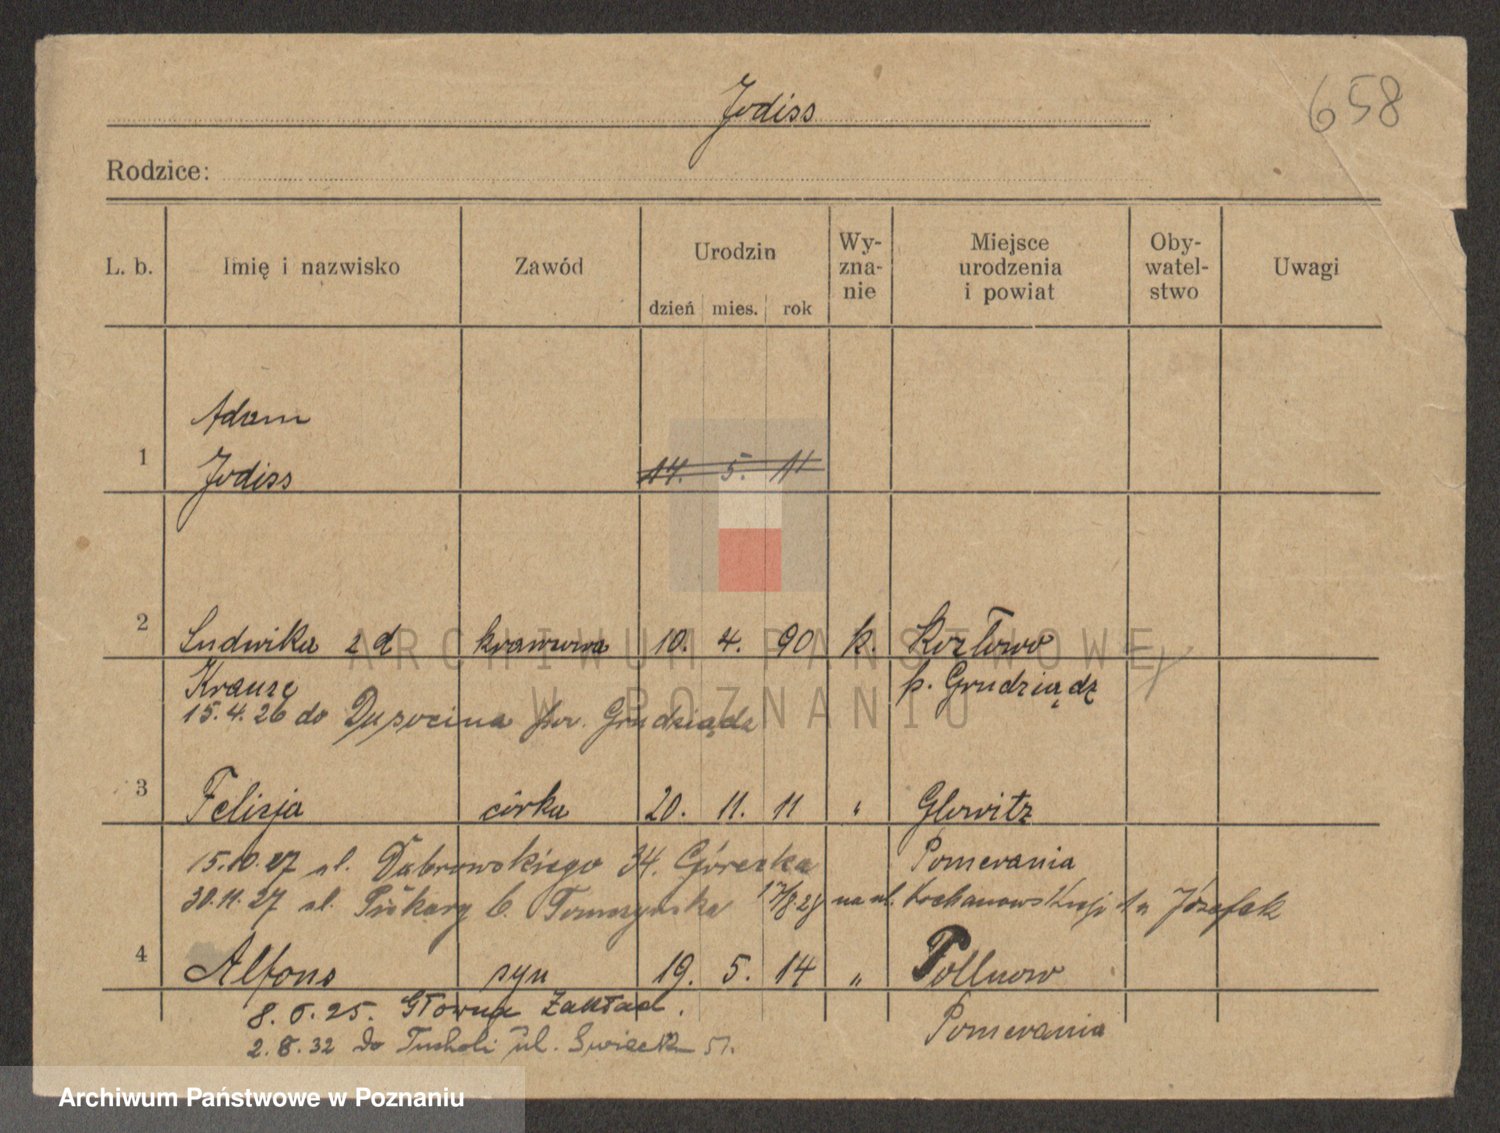 Jodiss
658
Rodzice:
L. b. Imię i nazwisko Zawód Urodzin dzień mies. rok Wy-zna-nie Miejsce urodzenia i powiat Oby-watel-stwo Uwagi
Adam
1 Jodiss 14. 5. 11
2 Ludwika z d krawcowa 10. 4. 90 k. Kozłowo
Krause p. Grudziądz
15.4.26 do Dusocina pow. Grudziądz
3 Felizja córka 20. 11. 11 " Glowitz
15.10.27 ul. Dąbrowskiego 34. Górecka Pomerania
30.11.27 ul. Piekary 6. Tomaszewska 17/8 28 na ul. Kochanowskiego Józefak
4 Alfons syn 19. 5. 14 " Pollnow
8.6.25. Główna Zakład. Pomerania
2.8.32 do Tucholi ul. Świecka 51.
ARCHIWUM PAŃSTWOWE
W POZNANIU
Archiwum Państwowe w Poznaniu